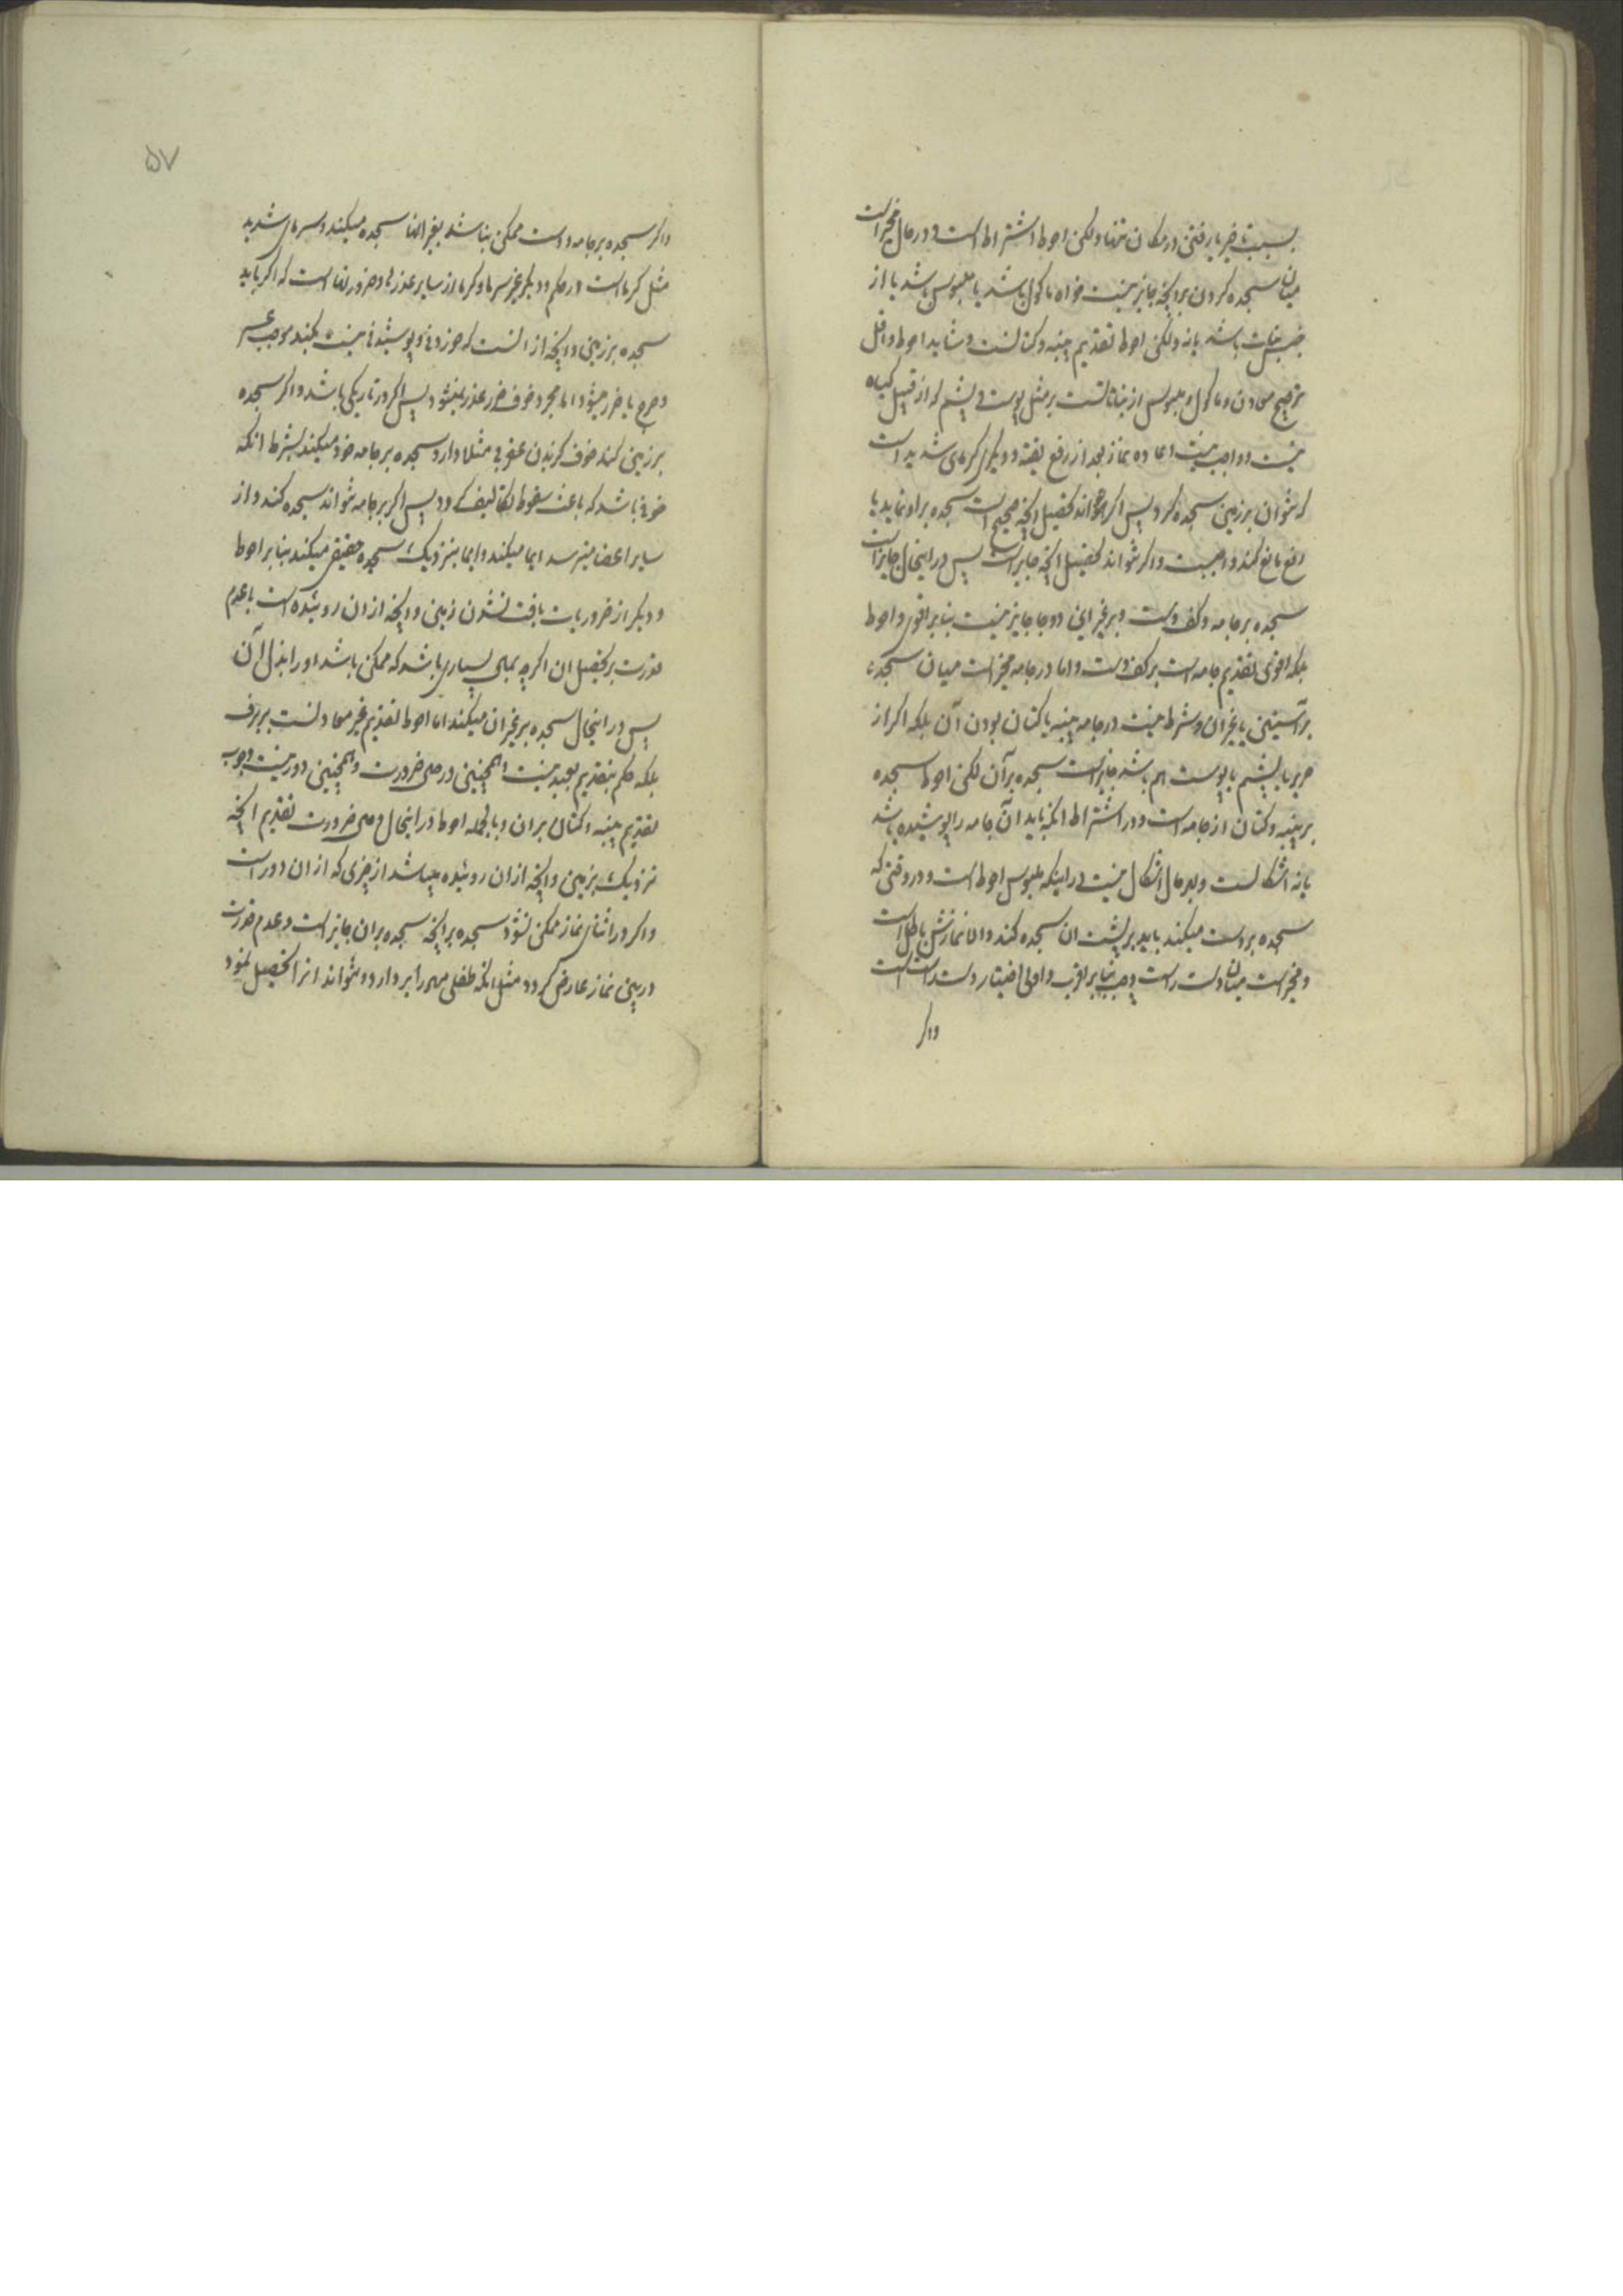 بسبب تاخیر یا رفتن در مکان تنها ولکن احوط اشتراط است و در حال مخیر است
میان سجده کردن بر انچه جایز نیست خواه ماکول باشد یا ملبوس باشد یا از
جنس نبات باشد یا نه ولکن احوط تقدیم پنبه و کتانست و شاید احوط و اقل
ترجیح معادن و ماکول و ملبوس از نباتاتست بر مثل پوست و پشم که از قبیل کیاه
نیست و واجب نیست اعاده نماز بعد از رفع تقیه و دیکر کرمای شدید است
که نتوان بر زمین سجده کرد پس اکر تواند تحصیل انچه صحیح است سجده بر او نماید یا
رفع مانع کند واجبست و اکر نتواند تحصیل انچه جایز است پس در اینحال جایز است
سجده بر جامه و کف دست و بر غیر این دو جا جایز نیست بنابر اقوی و احوط
بلکه اقوی تقدیم جامه است بر کف دست و اما در جامه مخیر است میان سجده
بر آستین یا غیر ان و شرط نیست در جامه پنبه یا کتان بودن آن بلکه اکر از
حریر یا پشم یا پوست هم باشد جایز است سجده بر آن لکن احوط سجده
بر پنبه و کتان از جامه است و در اشتراط انکه باید آن جامه را پوشیده باشد
یا نه اشکالست و بهر حال اشکال نیست در اینکه ملبوس احوط است و در وقتی که
سجده بر دست میکند باید بر پشت ان سجده کند و الا نمازش باطل است
و مخیر است میان دست راست و چپ بنابر اقرب و اولی اختیار دست راست است
و اکر
۵۷
و اکر سجده بر جامه و دست ممکن نباشد بغیر انها سجده میکند و سرمای شدید
مثل کرما است در حکم و دیکر غیر سرما و کرما از سایر عذرها و ضررها است که اکر باید
سجده بر زمین و انچه از انست که خوردنی و پوشیدنی نیست بکند موجب عسر
و حرج یا ضرر میشود اما مجرد خوف ضرر عذر نمیشود پس اکر در تاریکی باشد و اکر سجده
بر زمین کند خوف کزیدن عقربی مثلا دارد سجده بر جامه خود میکند بشرط انکه
خوفی باشد که باعث سقوط تکالیف کردد پس اکر بر جامه نتواند سجده کند و از
سایر اعضا میترسد ایما میکند و ایما بنزدیک سجده حقیقی میکند بنابر احوط
و دیکر از ضروریات یافت نشدن زمین و انچه از ان روئیده است با عدم
قدرت بر تحصیل ان اکرچه بمال بسیاری باشد که ممکن باشد او را بذل آن
پس در اینحال سجده بر غیر ان میکند اما احوط تقدیم غیر معادنست بر برف
بلکه حکم بتقدیم بعید نیست همچنین در حال ضرورت و همچنین دور نیست وجوب
تقدیم پنبه و کتان بر ان و بالجمله احوط در اینحال و حال ضرورت تقدیم انچه
نزدیک بزمین و انچه از ان روئیده میباشد از چیزی که از ان دور است
و اکر در اثنای نماز ممکن نشود سجده بر انچه سجده بر ان جایز است و عدم قدرت
در بین نماز عارض کردد مثل انکه طفلی مهر را بر دارد و نتواند انرا تحصیل نمود